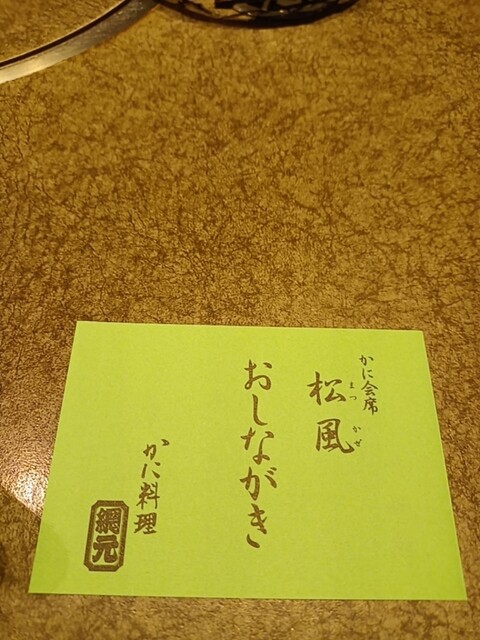 かに会席
松風
まつかぜ
おしながき
かに料理
網元